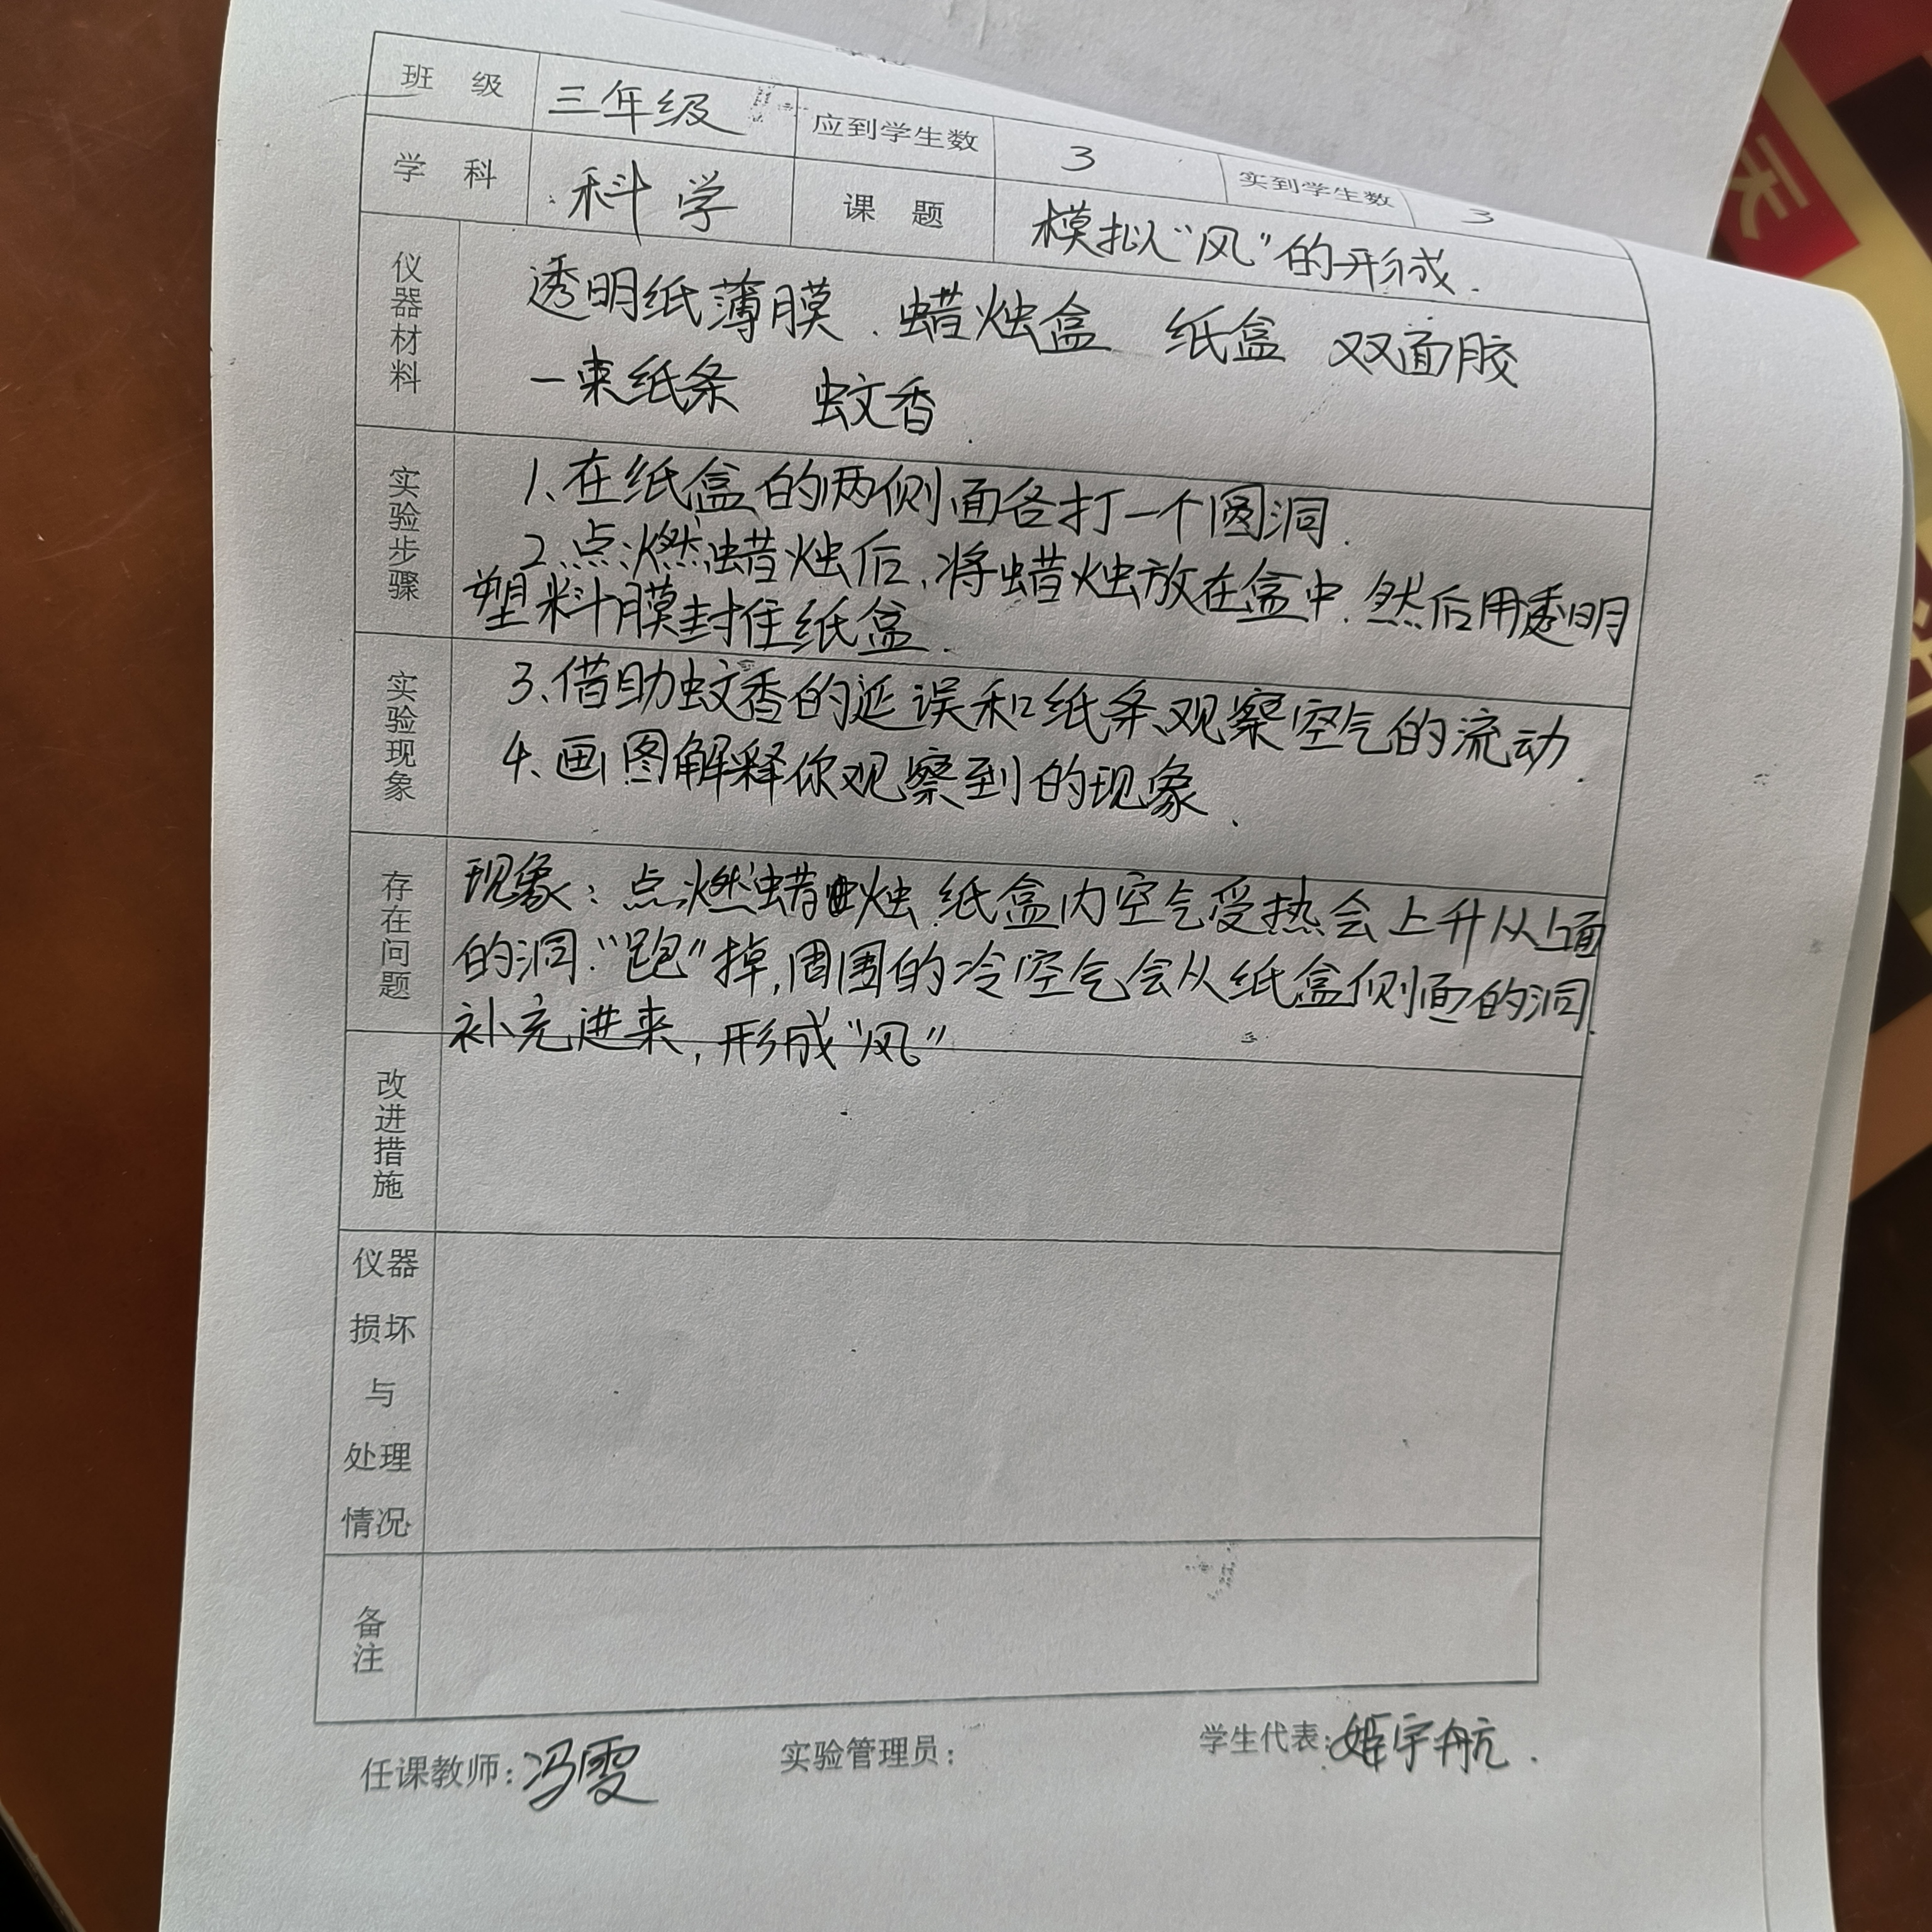 班 级 三年级 应到学生数 3 实到学生数 3
学 科 科学 课 题 模拟“风”的形成.
仪器材料 透明纸薄膜、蜡烛盒 纸盒 双面胶
一束纸条 蚊香
实验步骤 1、在纸盒的两侧面各打一个圆洞.
2、点燃蜡烛后,将蜡烛放在盒中.然后用透明
塑料膜封住纸盒.
实验现象 3、借助蚊香的延误和纸条观察空气的流动.
4、画图解释你观察到的现象.
存在问题 现象:点燃蜡烛纸盒内空气受热会上升从上面
的洞“跑”掉,周围的冷空气会从纸盒侧面的洞
补充进来,形成“风”
改进措施
仪器
损坏
与
处理
情况
备注
任课教师:冯雯 实验管理员: 学生代表:姬宇航.
天